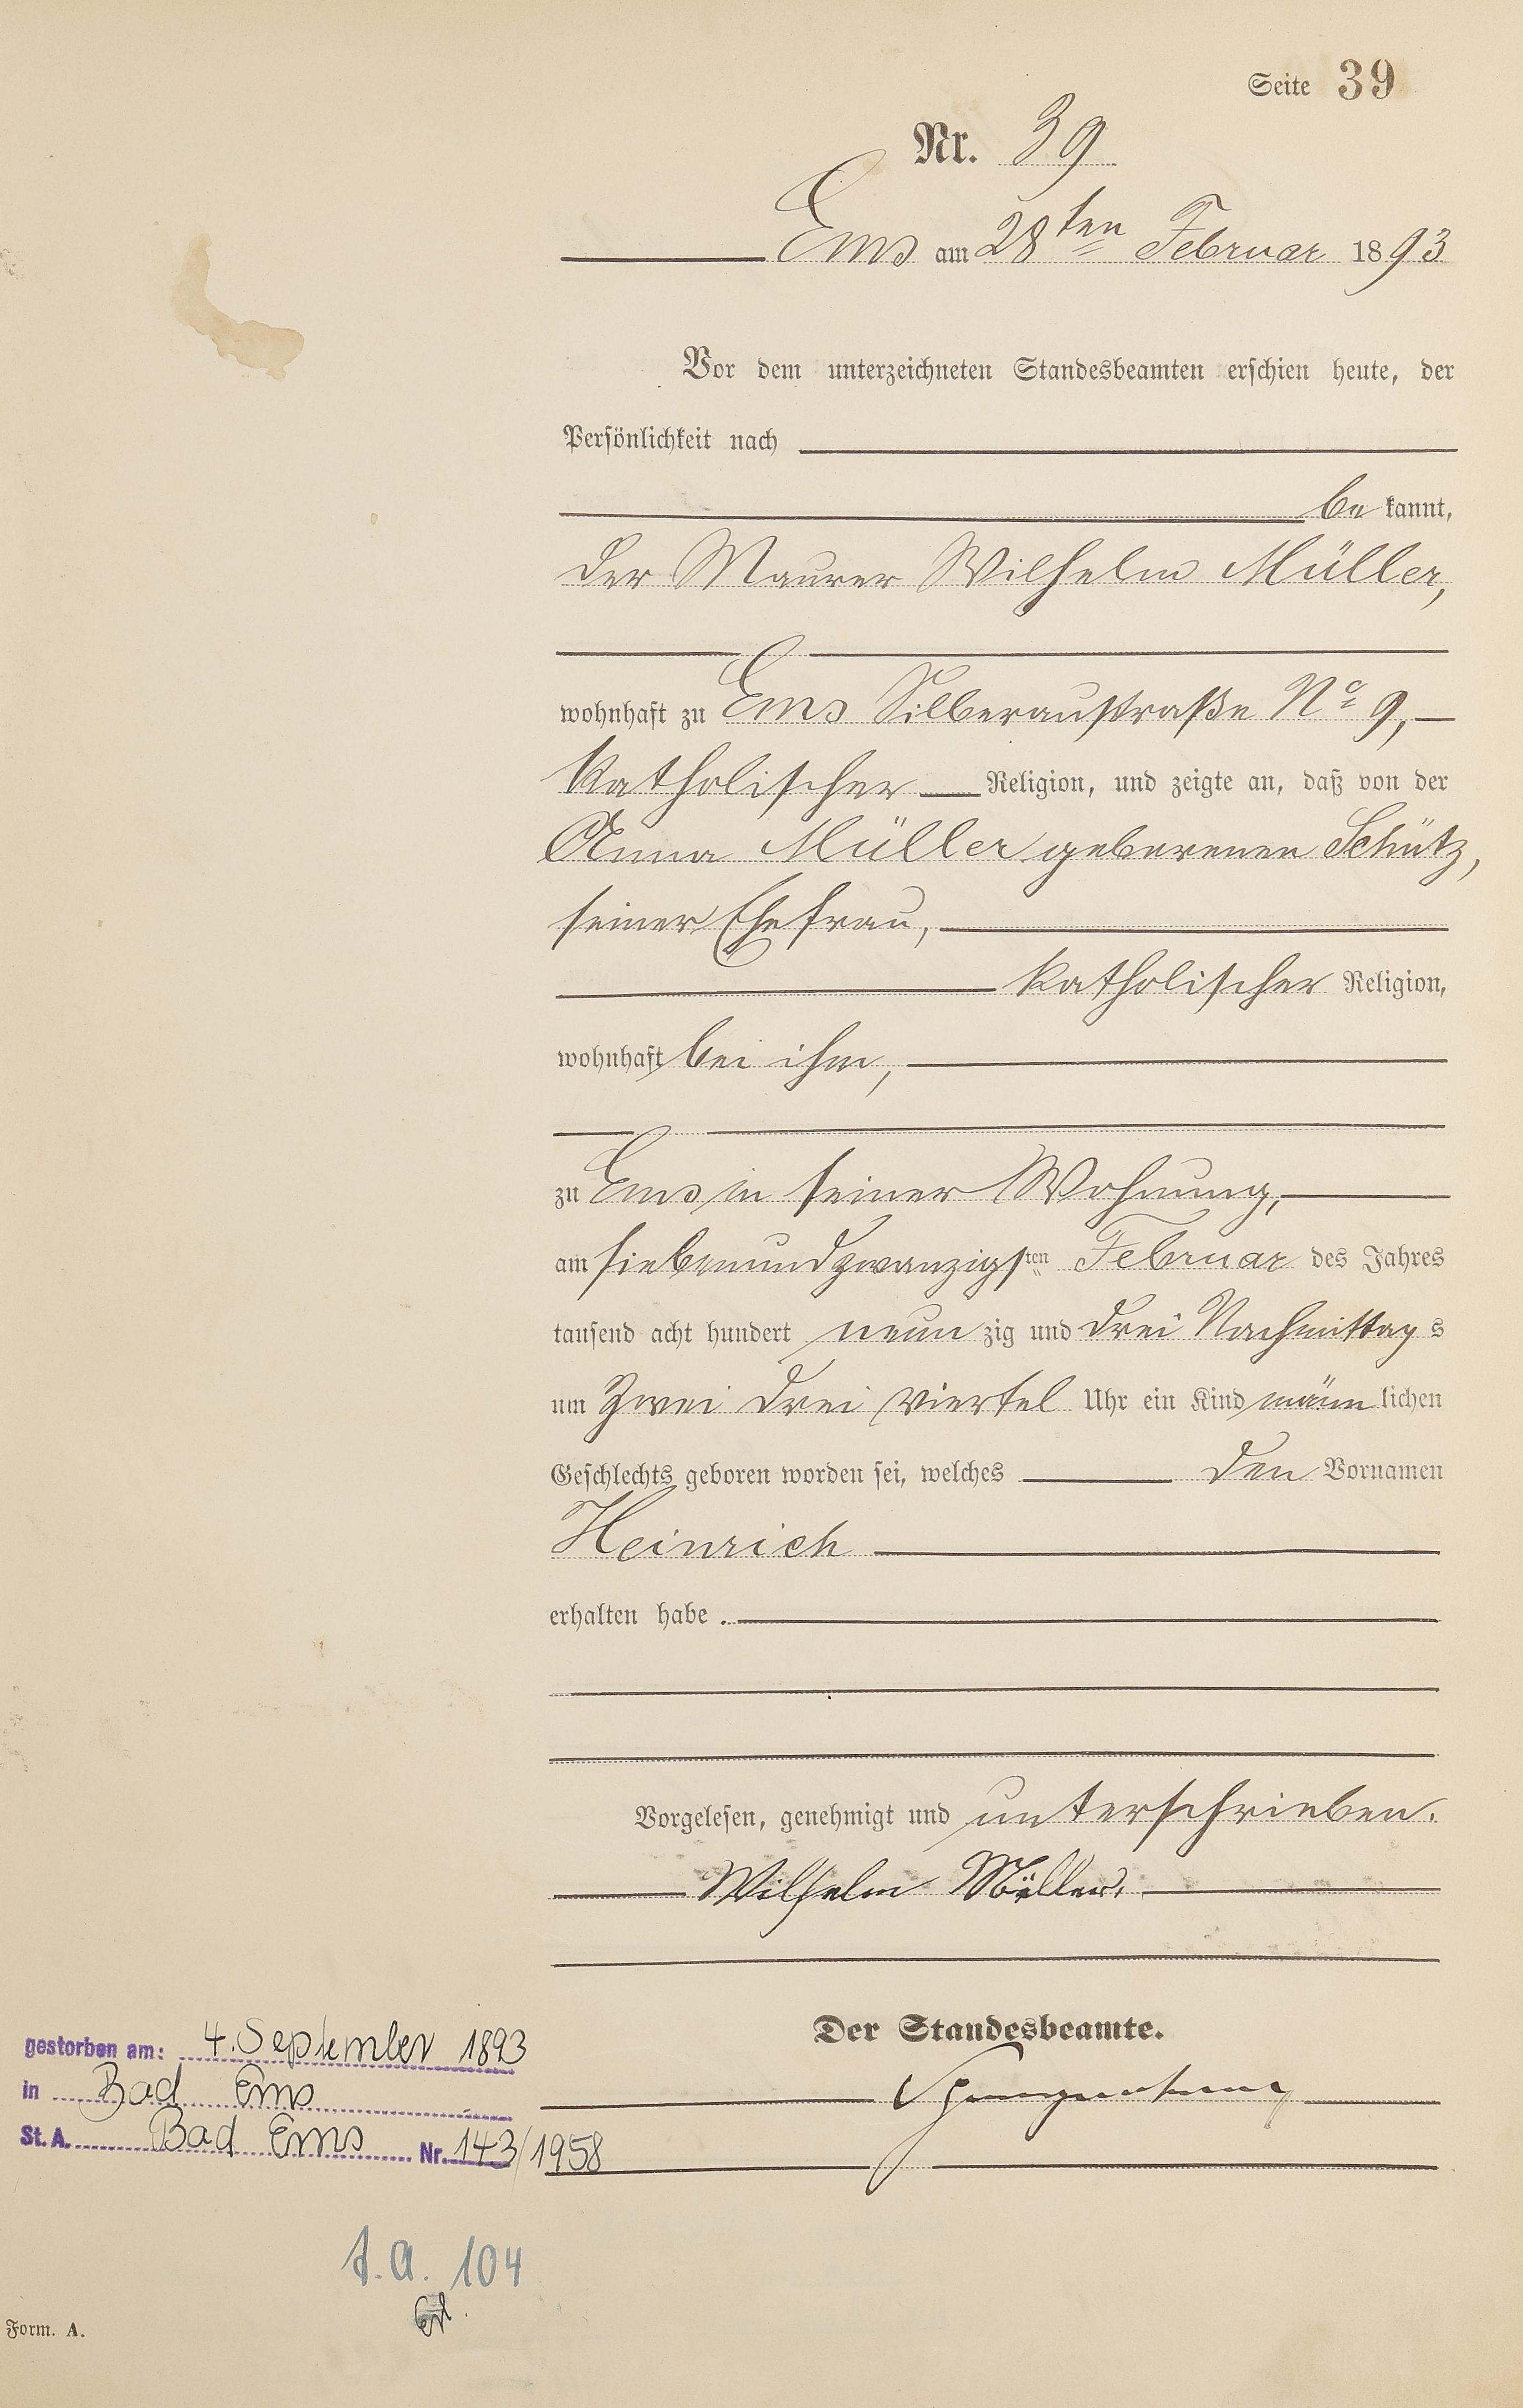 Seite 39
Nr. 39
Ems am 28ten Februar 1893
Vor dem unterzeichneten Standesbeamten erschien heute, der
Persönlichkeit nach
be kannt,
der Maurer Wilhelm Müller,
wohnhaft zu Ems Silberaustraße No 9,
katholischer Religion, und zeigte an, daß von der
Anna Müller geborenen Schütz,
seiner Ehefrau,
katholischer Religion,
wohnhaft bei ihm,
zu Ems in seiner Wohnung,
am siebenundzwanzigsten Februar des Jahres
tausend acht hundert neun zig und drei Nachmittag s
um zwei drei viertel Uhr ein Kind männ lichen
Geschlechts geboren worden sei, welches den Vornamen
Heinrich
erhalten habe.
Vorgelesen, genehmigt und unterschrieben.
Wilhelm Müller.
Der Standesbeamte.
gestorben am: 4. September 1893
in Bad Ems
St. A. Bad Ems Nr. 143/1958
s.a. 104
Form. A.